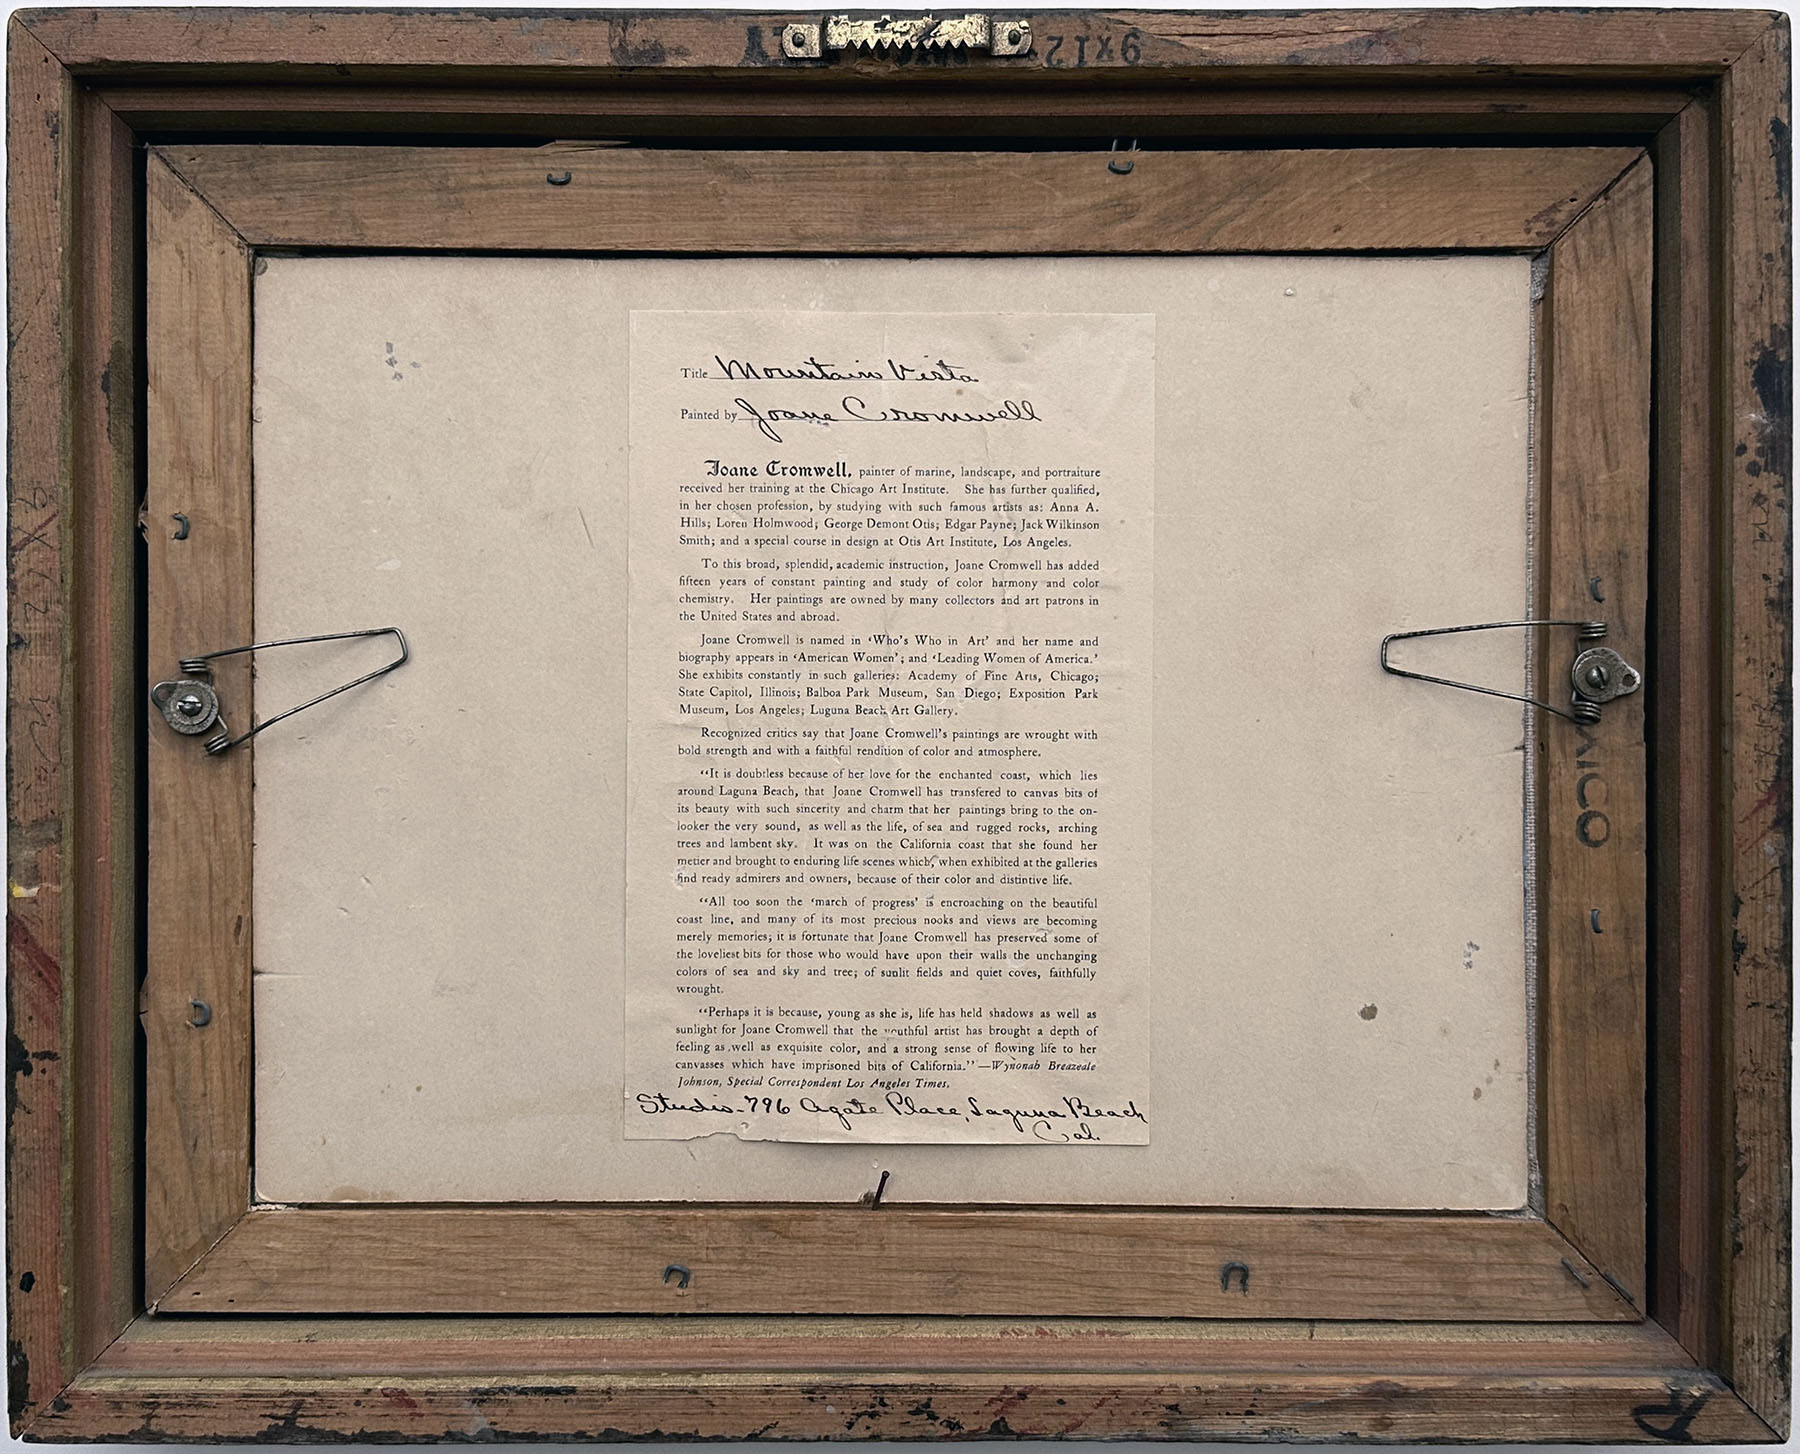 9x12
Title Mountain Vista
Painted by Joane Cromwell
Joane Cromwell, painter of marine, landscape, and portraiture
received her training at the Chicago Art Institute. She has further qualified,
in her chosen profession, by studying with such famous artists as: Anna A.
Hills; Loren Holmwood; George Demont Otis; Edgar Payne; Jack Wilkinson
Smith; and a special course in design at Otis Art Institute, Los Angeles.
To this broad, splendid, academic instruction, Joane Cromwell has added
fifteen years of constant painting and study of color harmony and color
chemistry. Her paintings are owned by many collectors and art patrons in
the United States and abroad.
Joane Cromwell is named in ‘Who's Who in Art’ and her name and
biography appears in ‘American Women’; and ‘Leading Women of America.’
She exhibits constantly in such galleries: Academy of Fine Arts, Chicago;
State Capitol, Illinois; Balboa Park Museum, San Diego; Exposition Park
Museum, Los Angeles; Luguna Beach Art Gallery.
Recognized critics say that Joane Cromwell's paintings are wrought with
bold strength and with a faithful rendition of color and atmosphere.
“It is doubtless because of her love for the enchanted coast, which lies
around Laguna Beach, that Joane Cromwell has transfered to canvas bits of
its beauty with such sincerity and charm that her paintings bring to the on-
looker the very sound, as well as the life, of sea and rugged rocks, arching
trees and lambent sky. It was on the California coast that she found her
metier and brought to enduring life scenes which, when exhibited at the galleries
find ready admirers and owners, because of their color and distintive life.
“All too soon the ‘march of progress’ is encroaching on the beautiful
coast line, and many of its most precious nooks and views are becoming
merely memories; it is fortunate that Joane Cromwell has preserved some of
the loveliest bits for those who would have upon their walls the unchanging
colors of sea and sky and tree; of sunlit fields and quiet coves, faithfully
wrought.
“Perhaps it is because, young as she is, life has held shadows as well as
sunlight for Joane Cromwell that the youthful artist has brought a depth of
feeling as well as exquisite color, and a strong sense of flowing life to her
canvasses which have imprisoned bits of California.”—Wynonah Breazeale
Johnson, Special Correspondent Los Angeles Times.
Studio-796 Agate Place, Laguna Beach
Cal.
XICO